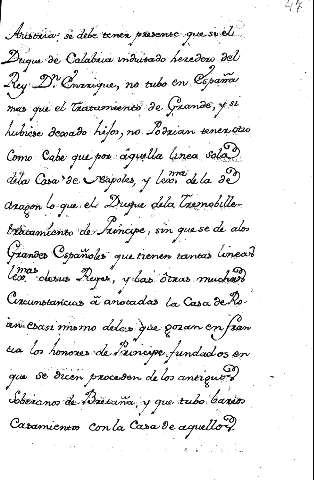 47
Austria: se debe tener presente que si el
Duque de Calabria induitado heredero del
Rey Dn. Enrrique, no tubo en España
mas que el tratamiento de Grande, y si
hubiese dexado hijos, no Podrian tener otro
como Cabe que por aquella linea sola
de la Casa de Napoles, y lexma. de la de
aragon lo que el Duque dela Tremobille
tratamiento de Principe, sin que se de alos
Grandes Españoles que tienen tantas lineas
lexmas. desus Reyes, y las òtras muchas
Circunstancias à anotadas la Casa de Ro-
an: casi mismo delas que gozan en fran
cia los honores de Principe fundados en
que se dicen proceden de los antiguos
Soberanos de Bretaña, y que tubo barios
Casamientos con la Casa de aquellos